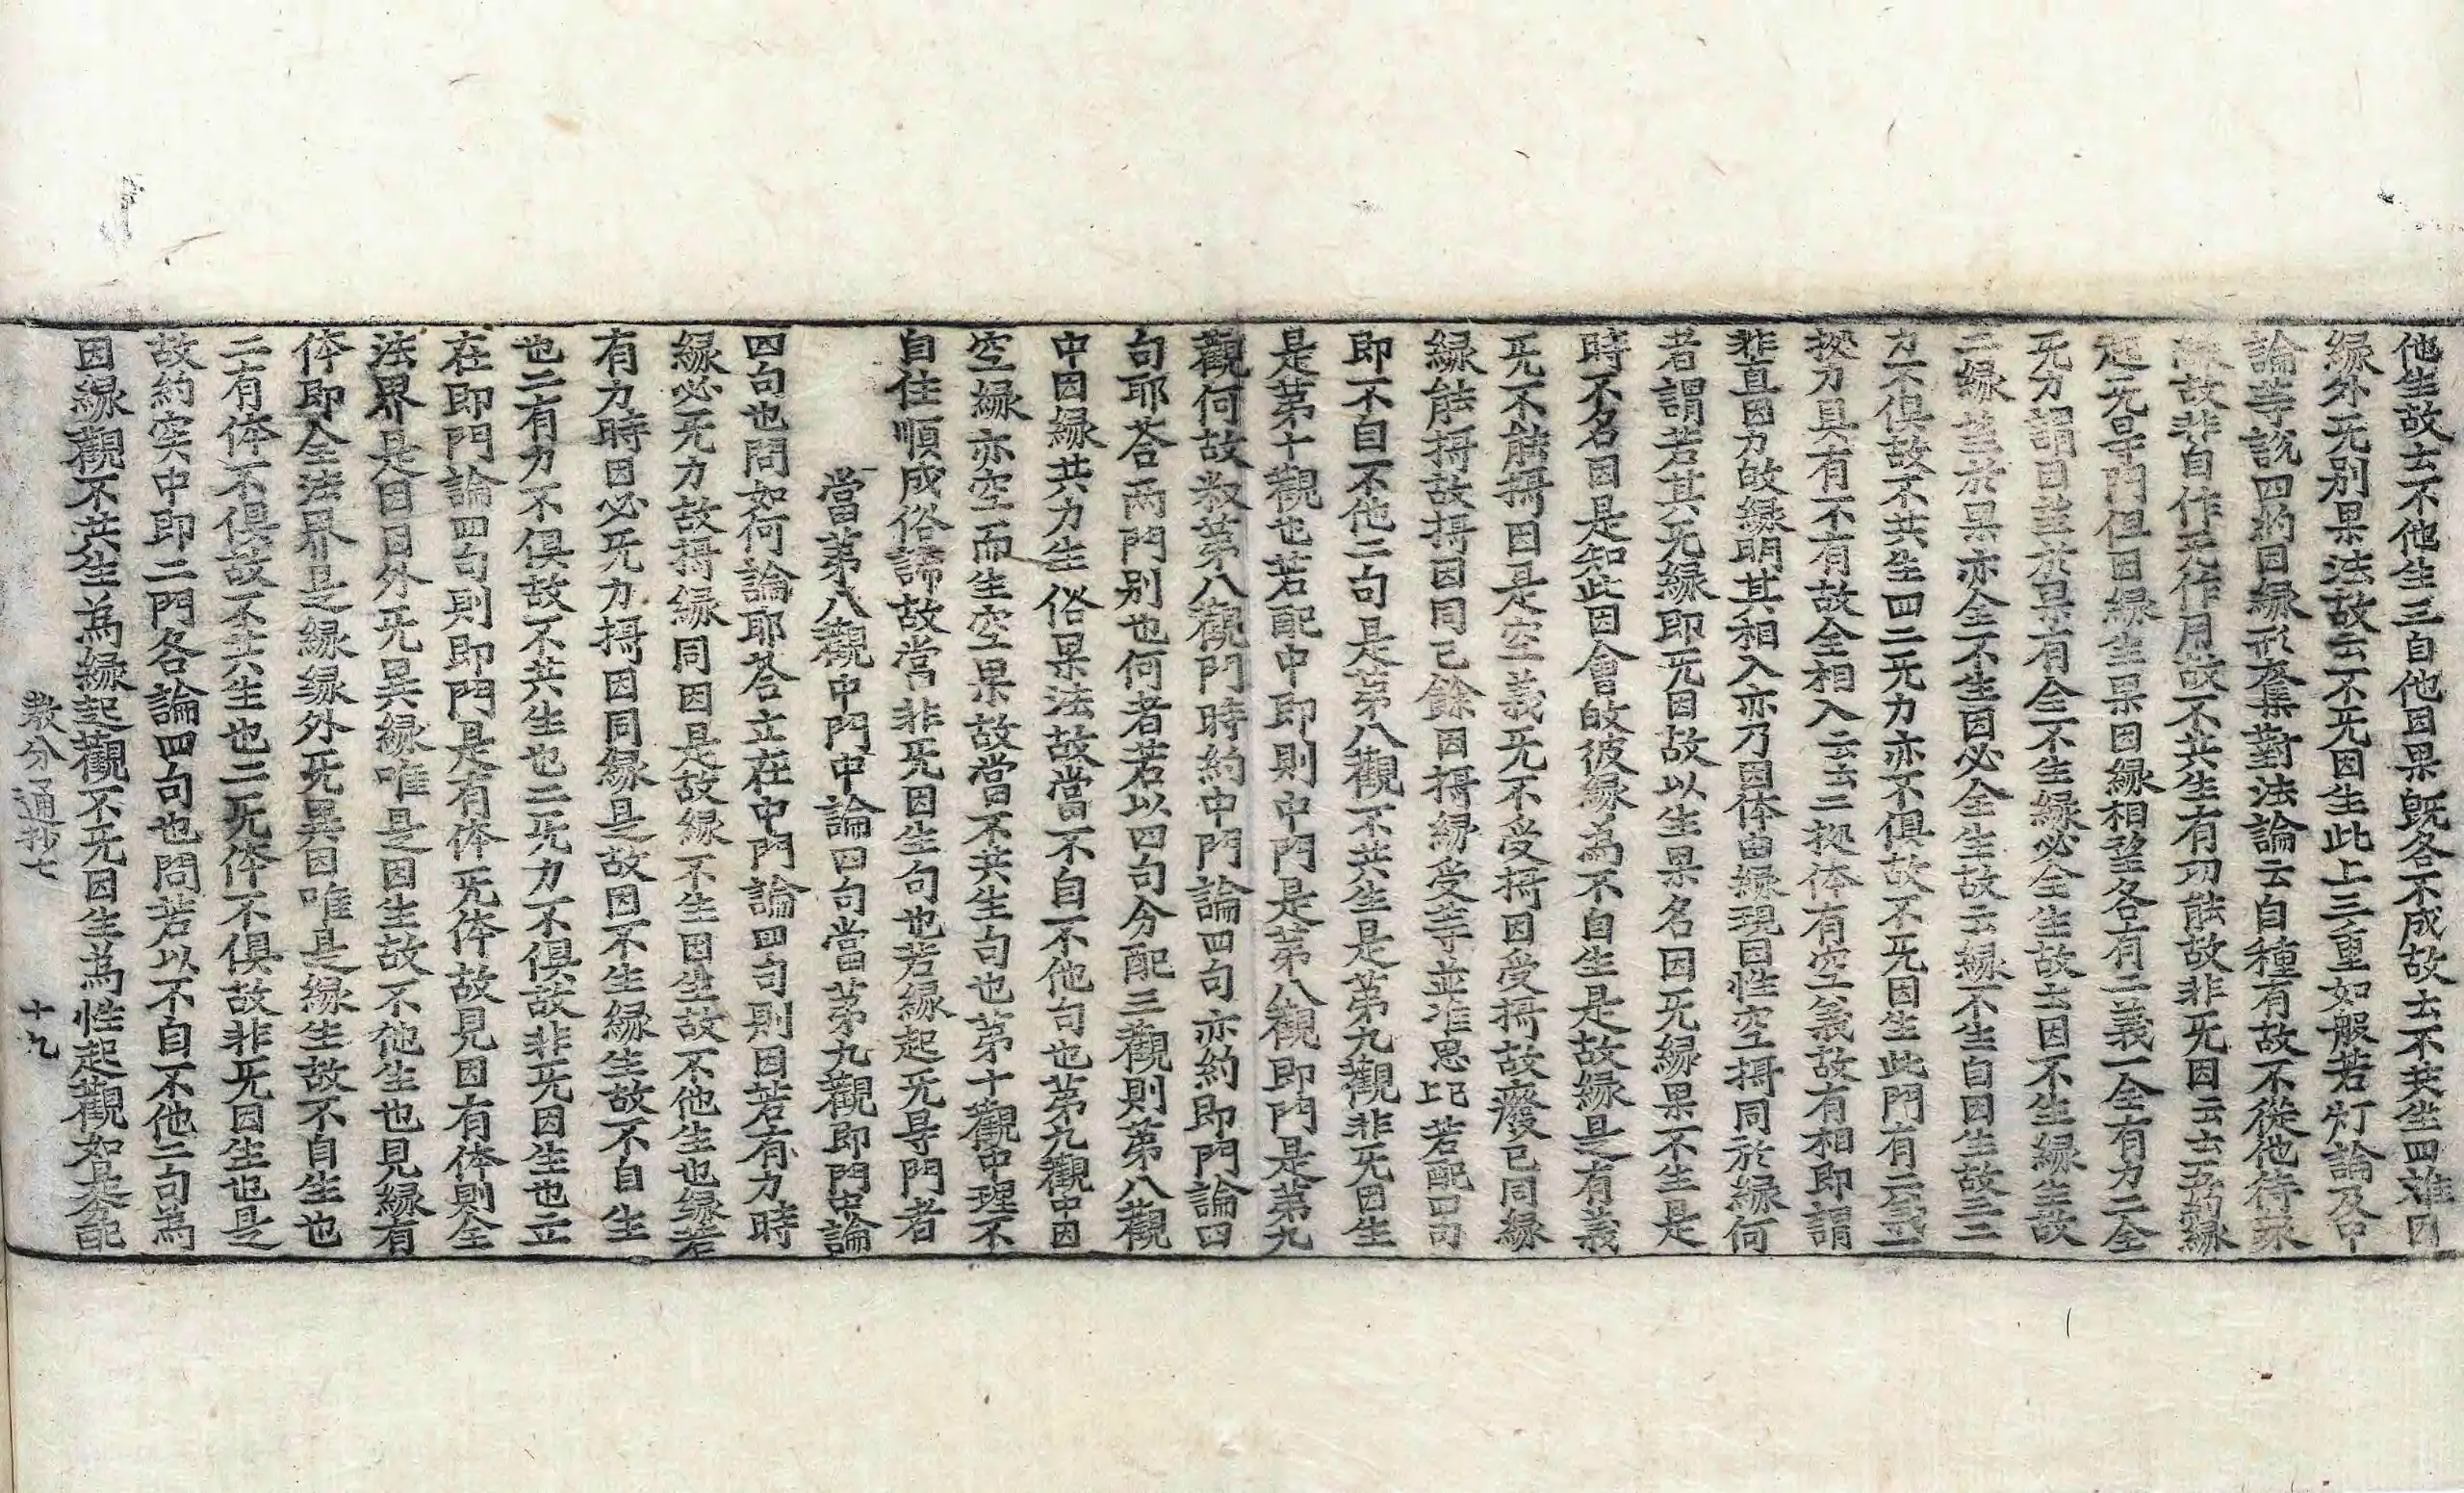 他生故云不他生三自他因果旣各不成故云不共生四離因
縁外旡別果法故云不旡因生此上三重如般若灯論及中
論等說四約因縁形奪集對法論云自種有故不從他待衆
縁故非自作旡作用故不共生有功能故非旡因云云五約縁
起旡㝵門但因縁生果因縁相望各有二義一全有力二全
旡力謂因望於果有全不生縁必全生故云因不生縁生故
二縁望於果亦全不生因必全生故云縁不生自因生故三二
力不俱故不共生四二旡力亦不俱故不旡因生此門有二義一
拠力具有不有故全相入云云二拠体有空義故有相即謂
非直因力故縁明其相入亦乃因体由縁現因性空揙同於縁何
者謂若其旡縁即旡因故以生果名因旡縁果不生是
時不名因是知此因會故彼縁為不自生是故縁是有義
旡不能揙因是空義旡不受揙因受揙故廢已同縁
縁能揙故揙因同已餘因揙縁受等並准思比若配四句
即不自不他二句是第八觀不共生是第九觀非旡因生
是第十觀也若配中即則中門是第八觀即門是第九
觀何故敎第八觀門時約中門論四句亦約即門論四
句耶荅兩門別也何者若以四句分配三觀則第八觀
中因縁共力生俗果法故當不自不他句也第九觀中因
空縁亦空而生空果故當不共生句也第十觀中理不
自住順成俗諦故當非旡因生句也若縁起旡㝵門者
當第八觀中門中論四句當第九觀即門中論
四句也問如何論耶荅立在中門論四句則因若有力時
縁必旡力故揙縁同因是故縁不生因生故不他生也縁若
有力時因必旡力揙因同縁是故因不生縁生故不自生
也二有力不俱故不共生也二旡力不俱故非旡因生也立
在即門論四句則即門是有体旡体故見因有体則全
法界是因因外旡異縁唯是因生故不他生也見縁有
体即全法界是縁縁外旡異因唯是縁生故不自生也
二有体不俱故不共生也二旡体不俱故非旡因生也是
故約実中即二門各論四句也問若以不自不他二句為
因縁觀不共生為縁起觀不旡因生為性起觀如是分配
敎分通抄七　十九